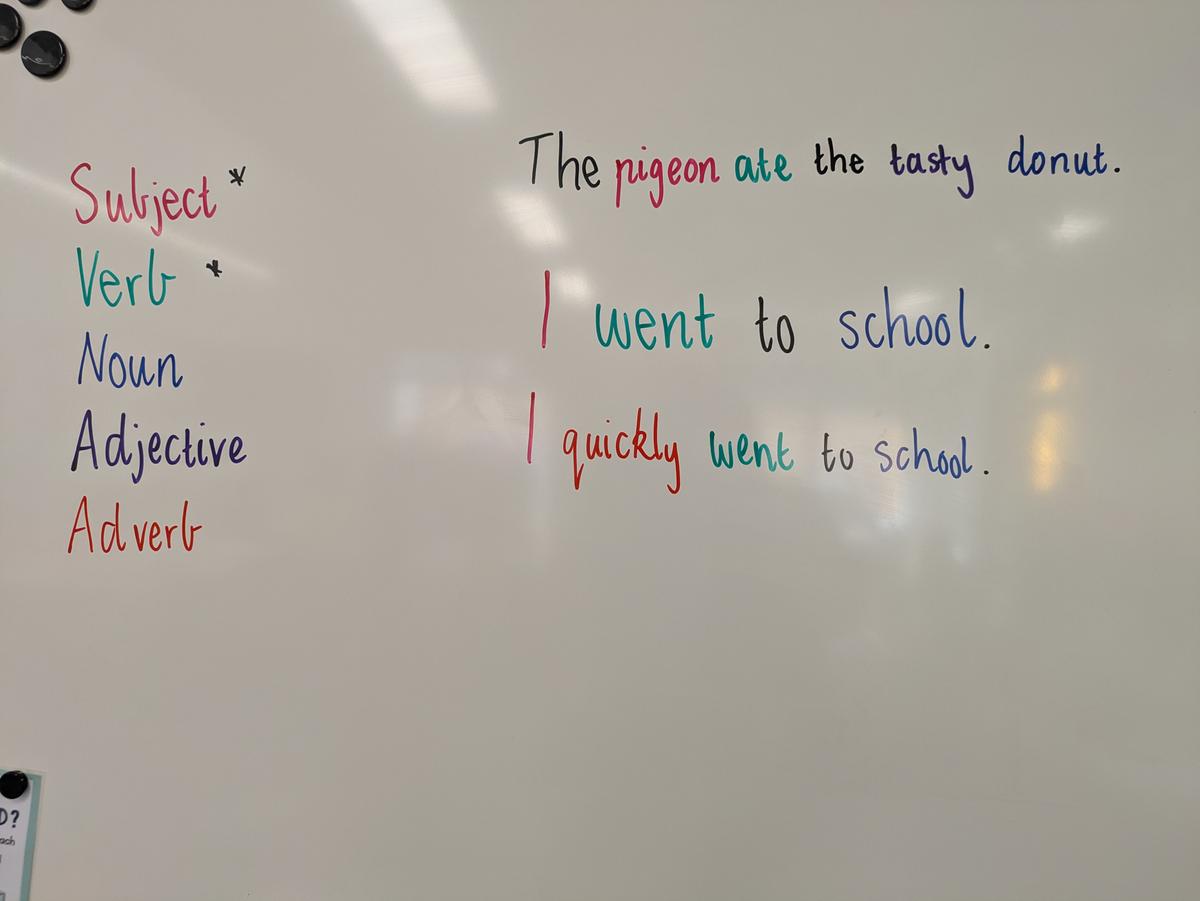 Subject *
Verb *
Noun
Adjective
Adverb
The pigeon ate the tasty donut.
I went to school.
I quickly went to school.
D?